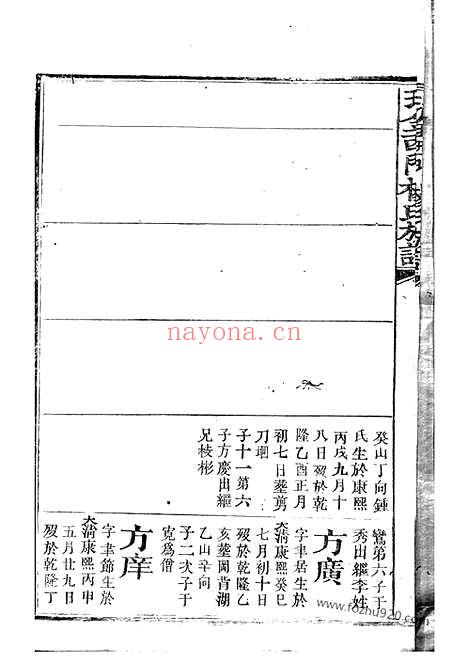 楊氏族譜
癸山丁向鍾
氏生於康熙
丙戌九月十
八日歿於乾
隆乙酉正月
初七日塟剪
刀
子十一第六
子方慶出繼
兄棱彬
鸞第六子于
秀田繼李姓
方廣
字聿居生於
大清康熙癸巳
七月初十日
歿於乾隆乙
亥塟岡背湖
乙山辛向
子二次子于
寛為僧
方庠
字聿節生於
大清康熙丙申
五月廿九日
歿於乾隆丁
nayona.cn
www.fozhu920.com